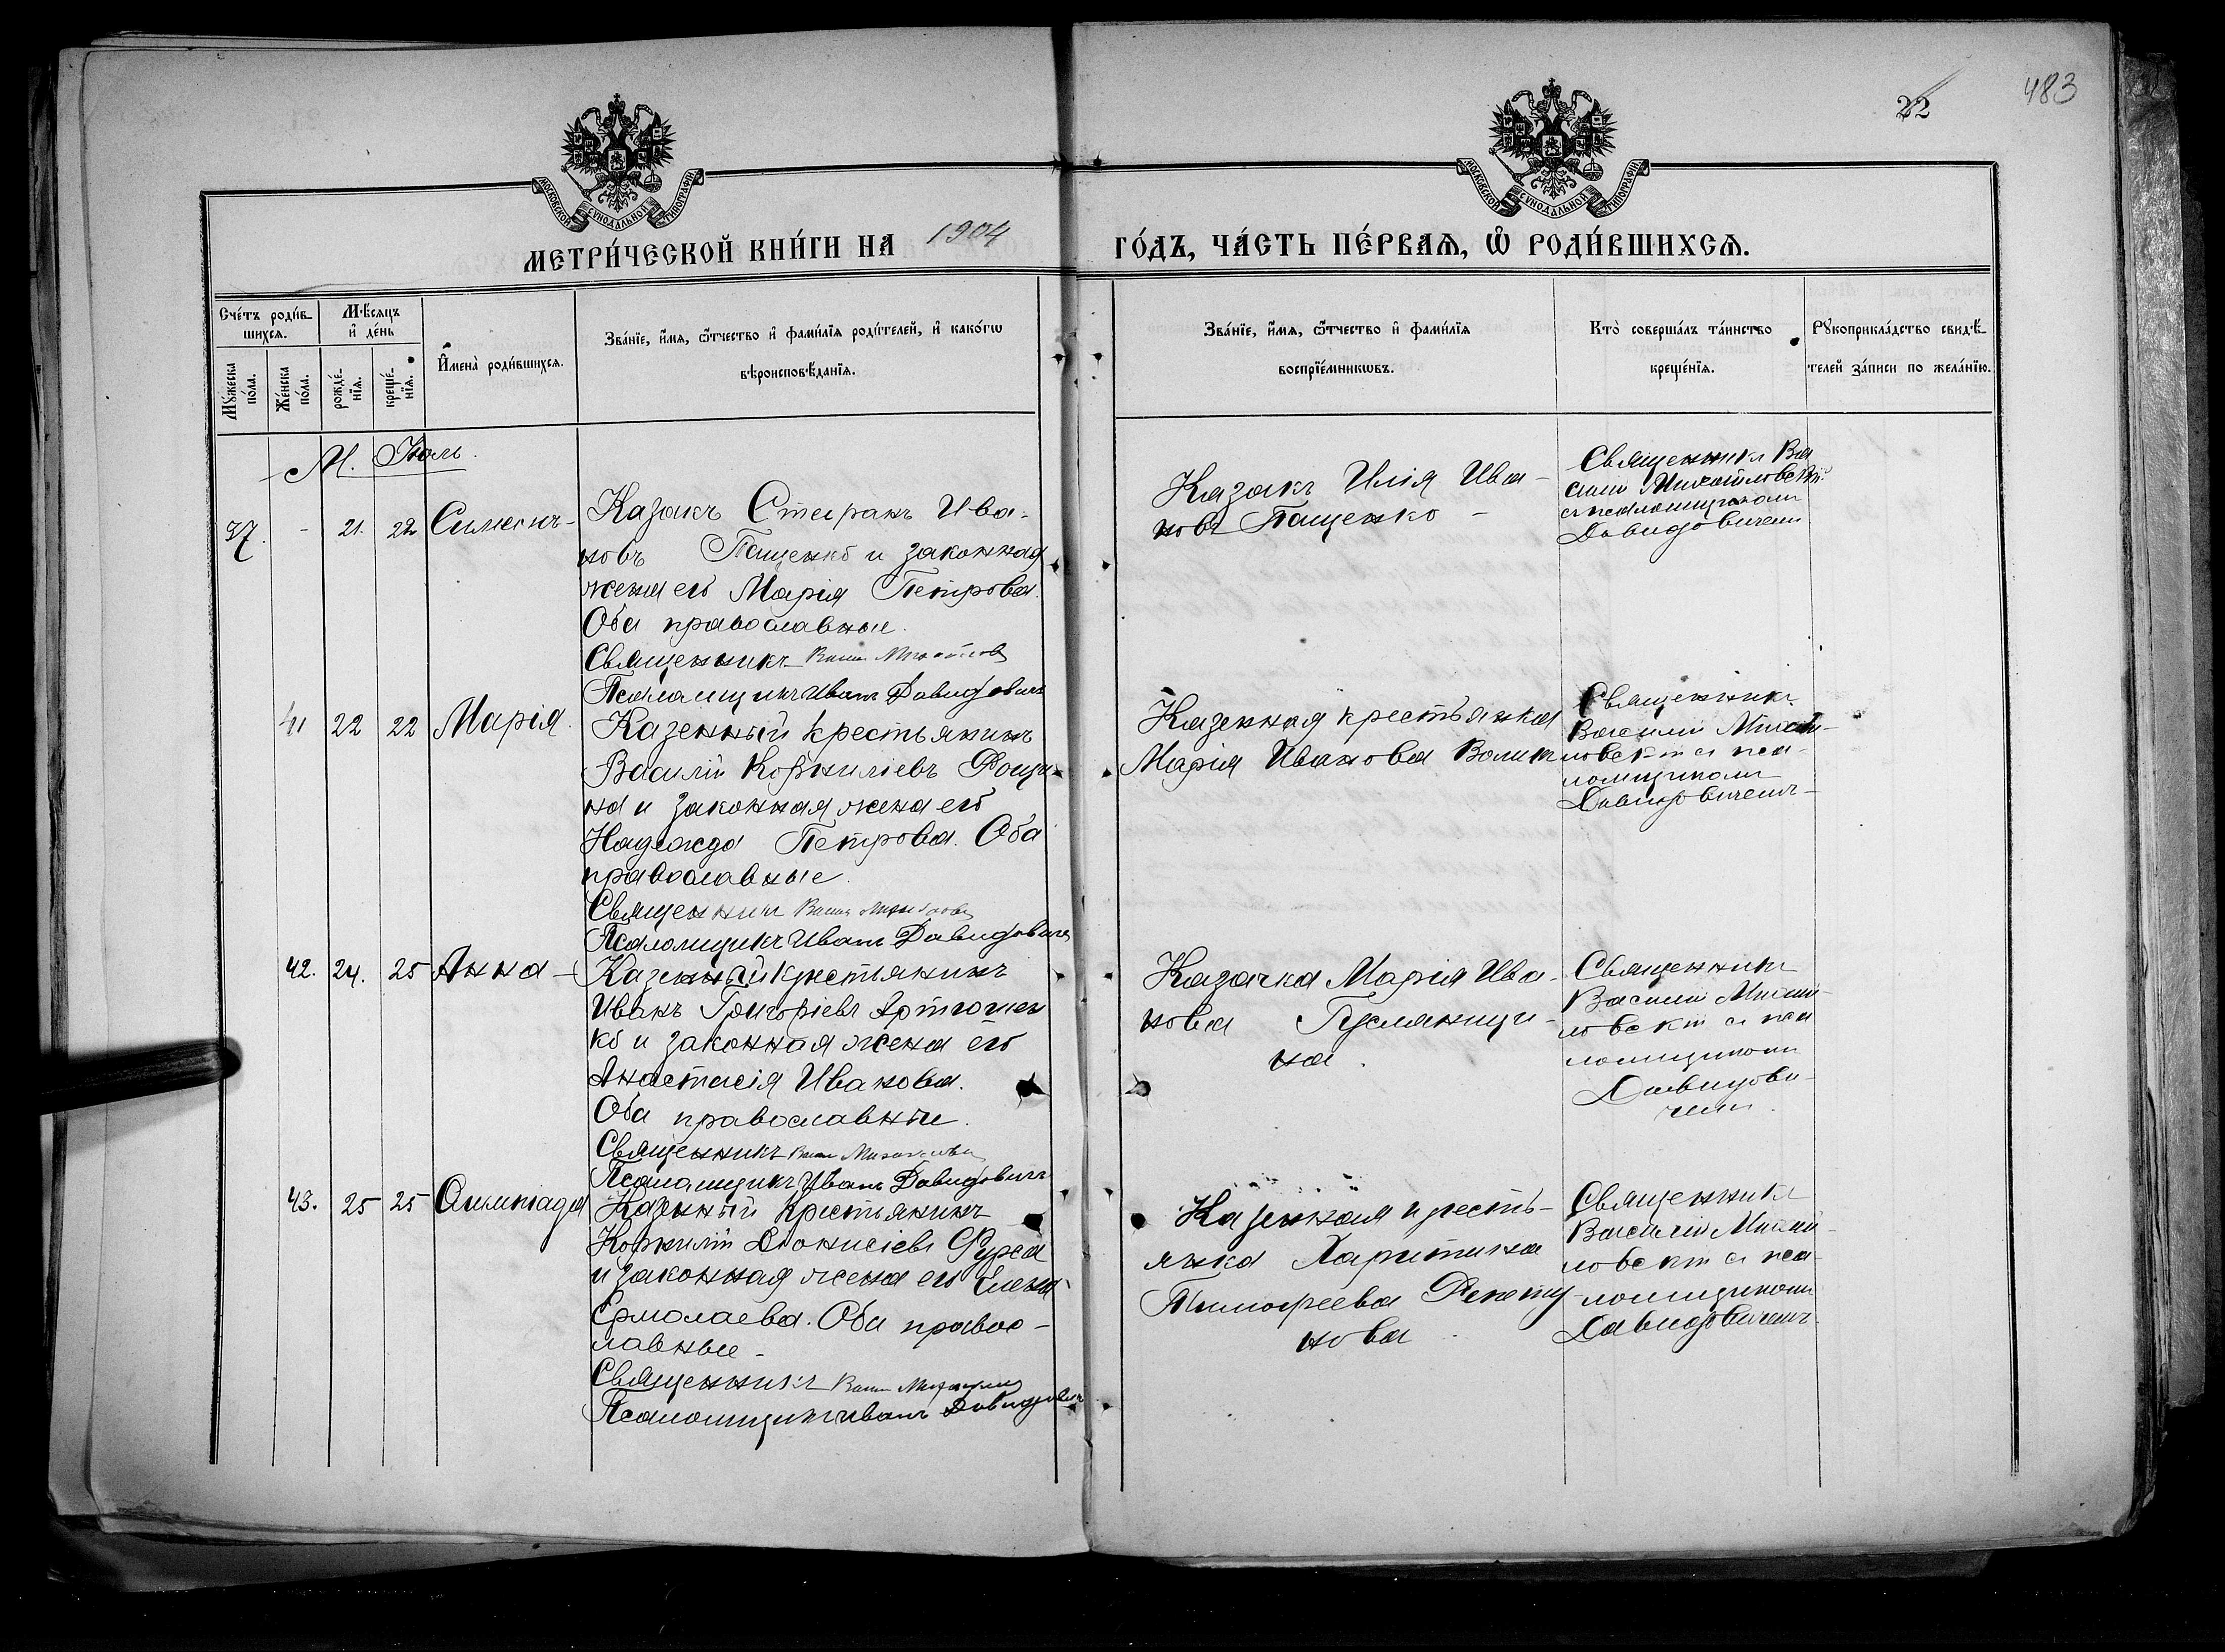 483
22
МОСКОВСКОЙ СУНОДАЛЬНОЙ ТИПОГРАФІИ
МОСКОВСКОЙ СУНОДАЛЬНОЙ ТИПОГРАФІИ
МЕТРИ́ЧЕСКОЙ КНИ́ГИ НА 1904
ГО́ДЪ, ЧА́СТЬ ПЕ́РВАѦ, Ѡ҆ РОДИ́ВШИХСѦ.
Сче́тъ роди́в-
шихсѧ.
Мꙋ́жеска
по́ла.
Же́нска
по́ла.
Мѣ́сяцъ
и҆ де́нь
рожде́-
нїѧ.
креще́-
нїѧ.
И҆мена̀ роди́вшихсѧ.
Зва́нїе, и҆́мѧ, ѻ҆́тчество и҆ фами́лїѧ роди́телей, и҆ како́гѡ
вѣроисповѣ́данїѧ.
Зва́нїе, и҆́мѧ, ѻ҆́тчество и҆ фами́лїѧ
воспрїе́мникѡвъ.
Кто̀ соверша́лъ та́инство
креще́нїѧ.
Рꙋкоприкла́дство свидѣ́-
телей за́писи по жела́нїю.
М. Іюль.
37. - 21. 22 Симеонъ-
Казакъ Стефанъ Ива-
новъ Пащенко и законная
жена его Марія Петрова.
Оба православные.
Священникъ
Псаломщикъ Иванъ Давидовичъ
Казакъ Илія Ива-
новъ Пащенко -
Священникъ Ва
силій Михайловскій
съ псаломщикомъ
Давидовичемъ
41 22 22 Марія.
Казенный крестьянинъ
Василій Корниліевъ
на и законная жена его
Надежда Петрова. Оба
православные.
Священникъ
Псаломщикъ Иванъ Давидовичъ
Казенная крестьянка
Марія Иванова
Священникъ
Василій Михай-
ловскій съ пса-
ломщикомъ
Давидовичемъ-
42. 24. 25 Анна-
Казенный крестьянинъ
Иванъ Григоріевъ Артюшен
ко и законная жена его
Анастасія Иванова.
Оба православные.
Священникъ
Псаломщикъ Иванъ Давидовичъ
Казачка Марія Ива-
нова
на.
Священникъ
Василій Михай-
ловскій съ пса
ломщикомъ
Давидови-
чемъ.
43. 25 25 Олимпіада
Казенный крестьянинъ
Корнилій Діонисіевъ Фурса
и законная жена его Елена
Ермолаева. Оба правос-
лавные-
Священникъ
Псаломщикъ Иванъ Давидовичъ
Казенная кресть-
янка Харитина
Тимофеева
нова.
Священникъ
Василій Михай-
ловскій съ пса-
ломщикомъ
Давидовичемъ